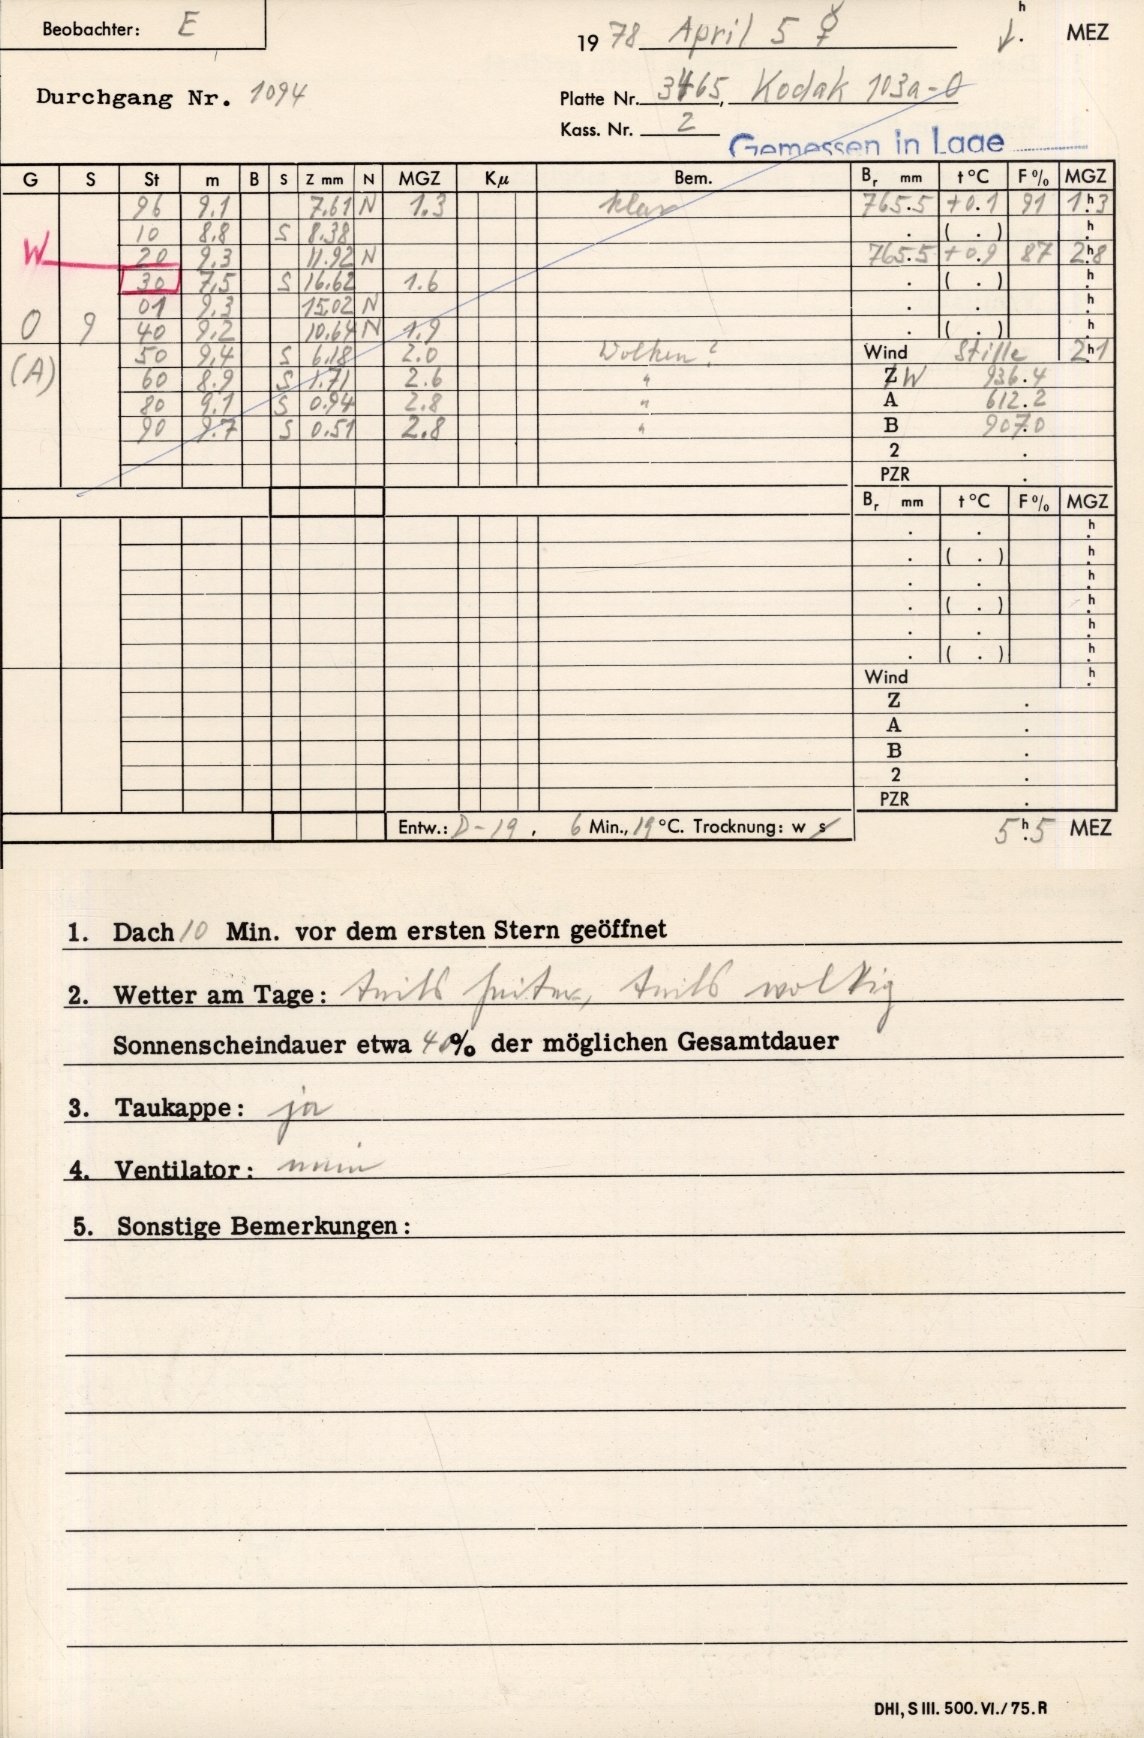 Beobachter: E
1978 April 5 ☿ h . MEZ
Durchgang Nr. 1094
Platte Nr. 3465, Kodak 103a-O
Kass. Nr. 2
Gemessen in Lage
G S St m B S Z mm N MGZ Kμ Bem. Br mm t °C F% MGZ
96 9.1 7.61 N 1.3 klar 765.5 +0.1 91 1h.3
10 8.8 S 8.38 . ( . ) h.
W 20 9.3 11.92 N 765.5 +0.9 87 2h.8
30 7.5 S 16.62 1.6 . ( . ) h.
01 9.3 15.02 N . . h.
O 9 40 9.2 10.64 N 1.9 . ( . ) h.
50 9.4 S 6.18 2.0 Wolken? Wind Stille 2h1
(A) 60 8.9 S 1.71 2.6 " Z W 936.4
80 9.1 S 0.94 2.8 " A 612.2
90 9.7 S 0.51 2.8 " B 907.0
2 .
PZR .
Br mm t °C F% MGZ
. . h.
. ( . ) h.
. . h.
. ( . ) h.
. . h.
. ( . ) h.
Wind h.
Z .
A .
B .
2 .
PZR .
Entw.: D-19, 6 Min., 19 °C. Trocknung: w s 5h.5 MEZ
1. Dach 10 Min. vor dem ersten Stern geöffnet
2. Wetter am Tage: teils heiter, teils wolkig
Sonnenscheindauer etwa 40% der möglichen Gesamtdauer
3. Taukappe: ja
4. Ventilator: nein
5. Sonstige Bemerkungen:
DHI, S III. 500. VI./75. R